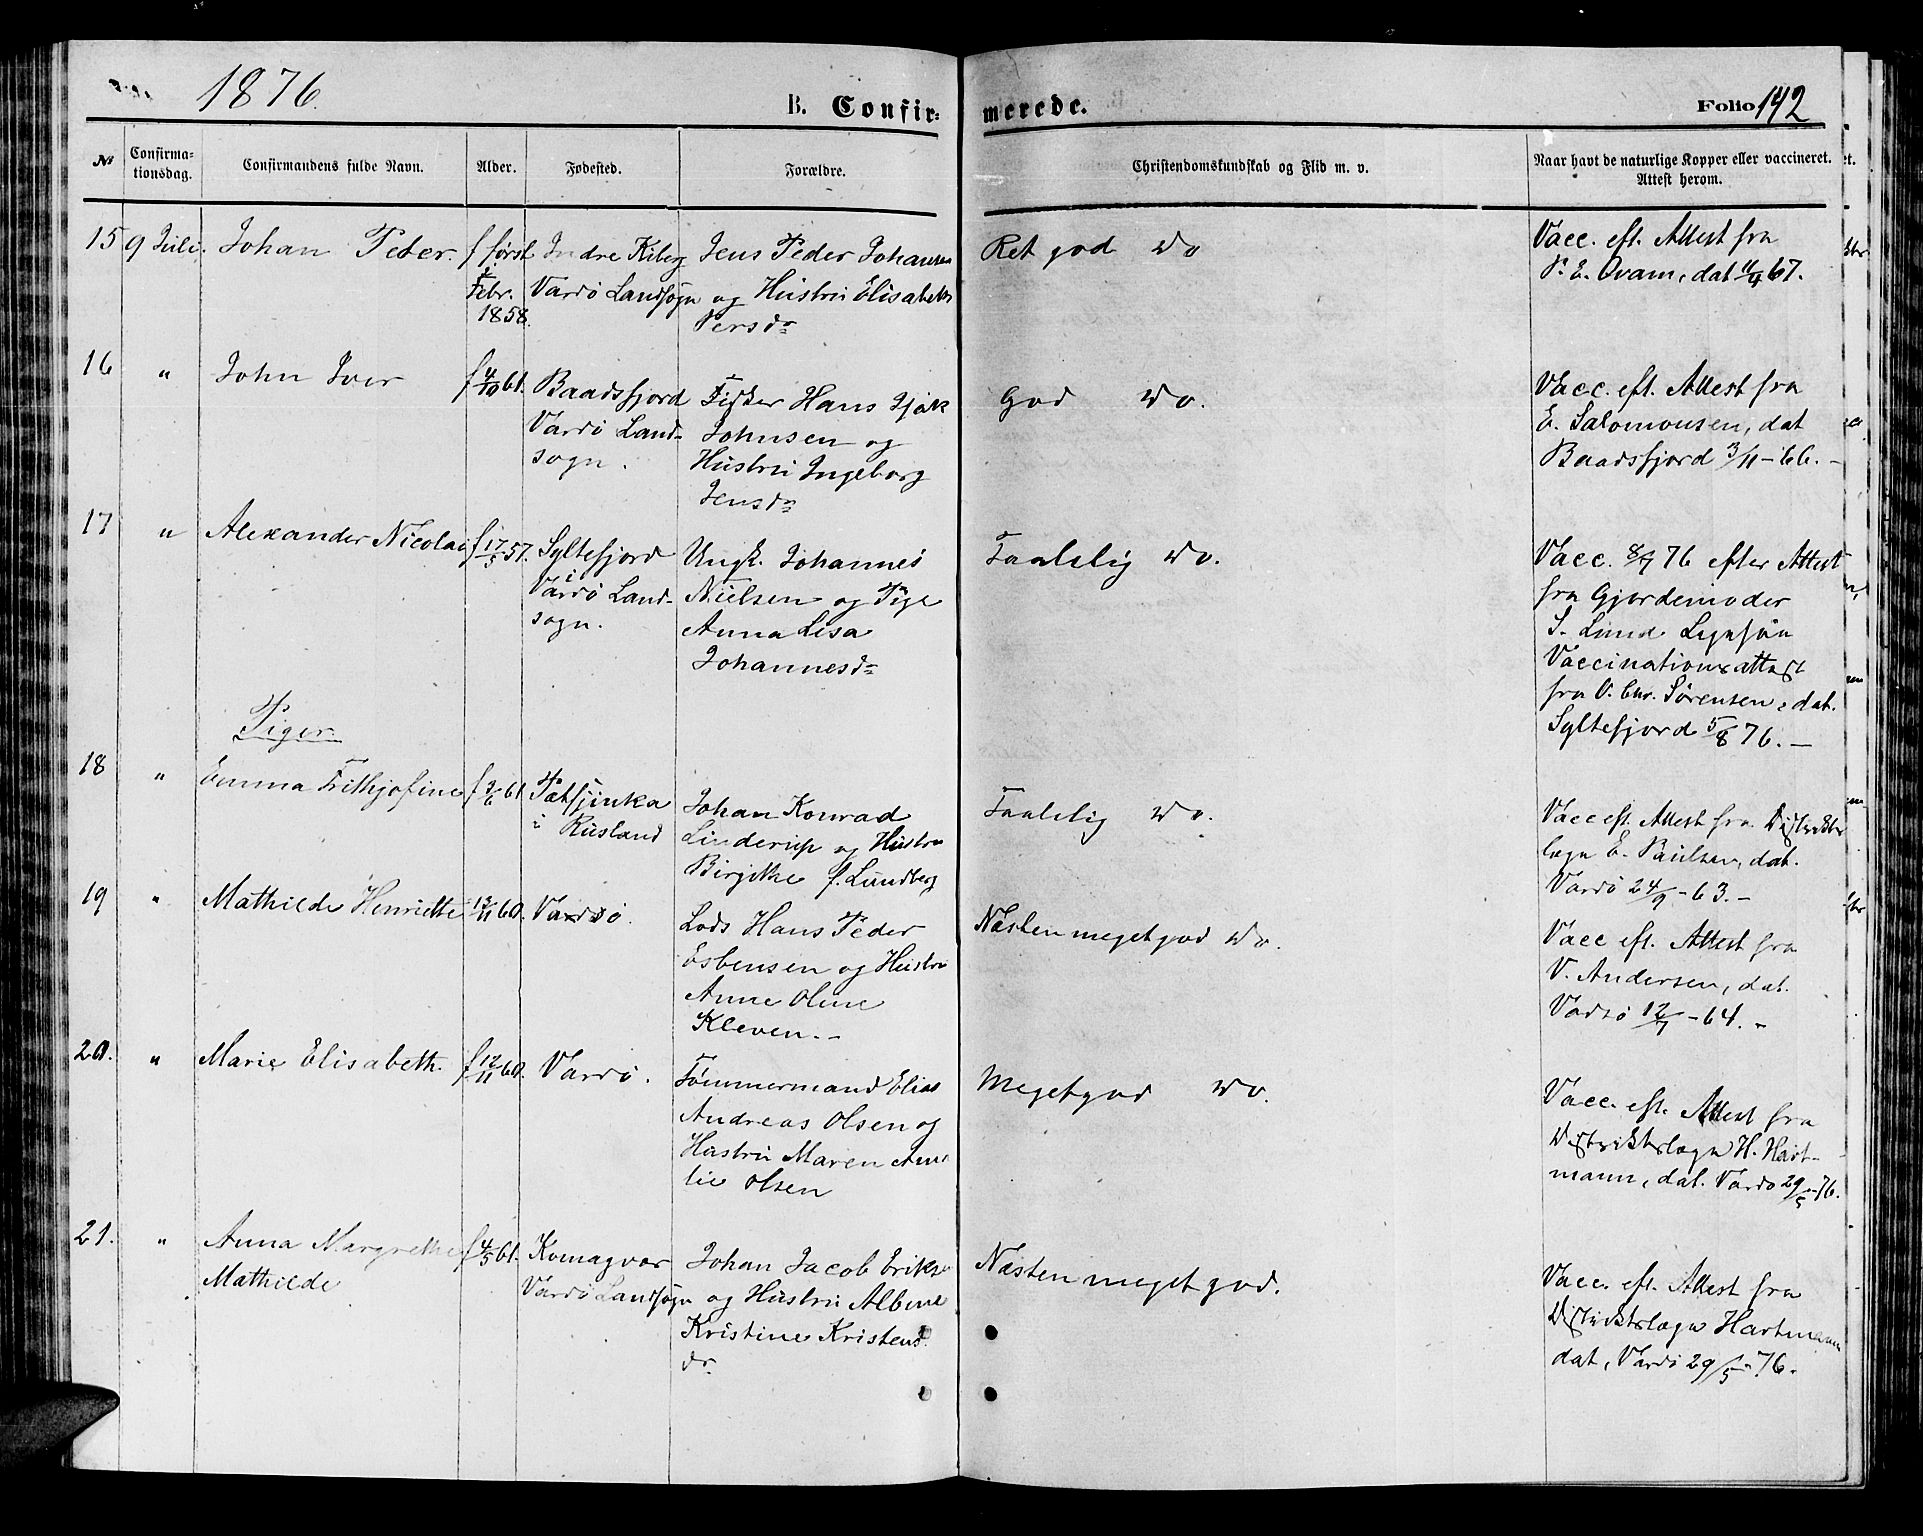 1876.
B. Confir-
merede.
Folio 142
No
Confirma-
tionsdag.
Confirmandens fulde Navn.
Alder.
Fødested.
Forældre.
Christendomskundskab og Flid m. v.
Naar havt de naturlige Kopper eller vaccineret.
Attest herom.
15 9 Juli. Johan Peder. f først Indre Kiberg Jens Peder Johansen
i Febr. Vardö Landsogn og Hustru Elisabeth
1858. Persdr
Ret god Do
Vacc. eft. Attest fra
P. E. Qvam, dat 11/4 67.
16 " John Iver f 4/10 61. Baadsfjord Fisker Hans
Vardö Land- Johnsen og
sogn. Hustru Ingeborg
Jensdr
God Do.
Vacc. eft. Attest fra
E. Salomonsen, dat
Baadsfjord 3/11 - 66. -
17 " Alexander Nicolai f 17/5 57. Syltefjord Ungk. Johannes
i Vardö Land- Nielsen og Pige
sogn. Anna Lisa
Johannesdr
Taalelig Do.
Vacc. 8/7 76 efter Attest
fra Gjordemoder
S. Lund
Vaccinationsattest
fra O. Chr. Sörensen, dat.
Syltefjord 5/8 76. -
Piger
18 " Emma Frithjofine f 2/6 61 Petsjinka Johan Konrad
i Rusland Linderup og Hustru
Birgitte f. Lundberg
Taalelig Do.
Vacc eft. Attest fra Distrikts
læge E. Paulsen, dat.
Vardö 24/9 - 63. -
19 " Mathilde Henriette 13/11 60. Vardö. Lods Hans Peder
Esbensen og Hustru
Anne Oline
Kleven. -
Næsten meget god Do.
Vacc eft. Attest fra
V. Andersen, dat.
Vadsö 12/7 - 64. -
20. " Marie Elisabeth. f 12/11 60. Vardö. Tömmermand Elias
Andreas Olsen og
Hustru Maren Ama
lie Olsen
Meget god Do.
Vacc. eft. Attest fra
Distriktslæge H. Hart-
mann, dat. Vardö 29/5 - 76.
21. " Anna Margrethe f 4/5 61. Komagvær Johan Jacob Eriks
Mathilde Vardö Landsogn og Hustru Albine
Kristine Kristens
dr.
Næsten meget god.
Vacc. eft. Attest fra
Distriktslæge Hartmann
dat, Vardö 29/5 - 76.